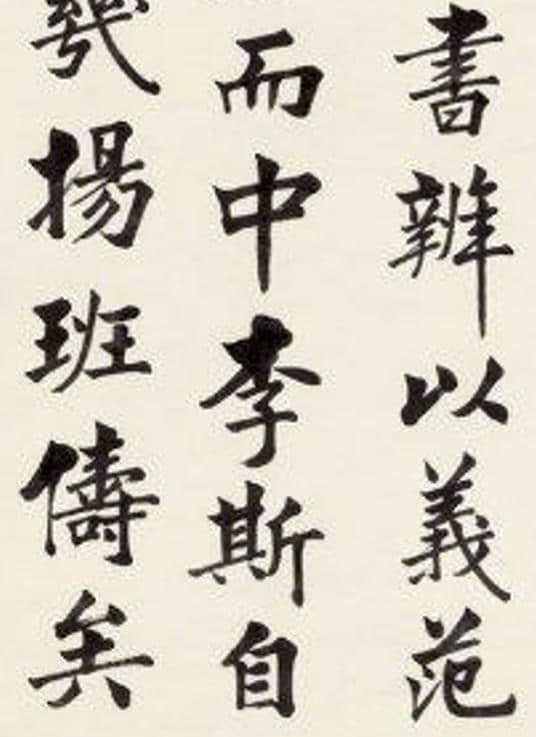 書辨以義范
而中李斯自
揚班儔矣